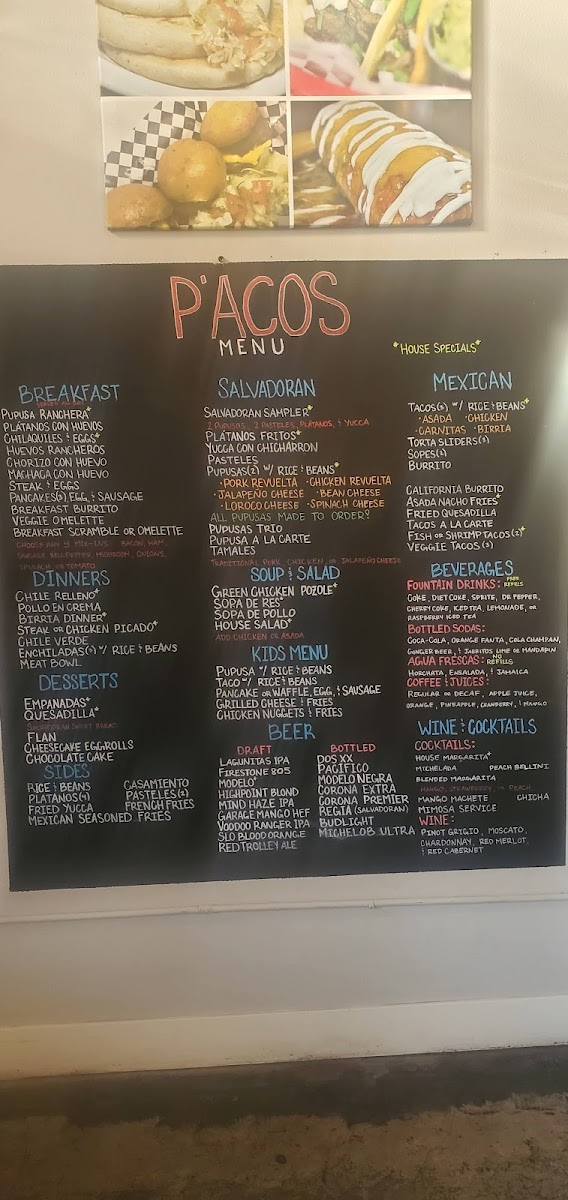 P'ACOS
MENU
*HOUSE SPECIALS*
BREAKFAST
PUPUSA RANCHERA*
PLÁTANOS CON HUEVOS
CHILAQUILES & EGGS*
HUEVOS RANCHEROS
CHORIZO CON HUEVO
MACHACA CON HUEVO
STEAK & EGGS
PANCAKES(2), EGG, & SAUSAGE
BREAKFAST BURRITO
VEGGIE OMELETTE
BREAKFAST SCRAMBLE OR OMELETTE
CHOOSE ANY 3 MIX-INS BACON, HAM,
SAUSAGE, BELLPEPPER, MUSHROOM, ONIONS,
SPINACH OR TOMATO
DINNERS
CHILE RELLENO*
POLLO EN CREMA
BIRRIA DINNER*
STEAK OR CHICKEN PICADO*
CHILE VERDE
ENCHILADAS(2) W/ RICE & BEANS
MEAT BOWL
DESSERTS
EMPANADAS*
QUESADILLA*
SALVADORAN SWEET BREAD
FLAN
CHEESECAKE EGGROLLS
CHOCOLATE CAKE
SIDES
RICE & BEANS
PLATANOS(4)
FRIED YUCCA
MEXICAN SEASONED FRIES
CASAMIENTO
PASTELES(2)
FRENCH FRIES
SALVADORAN
SALVADORAN SAMPLER*
2 PUPUSAS, 2 PASTELES, PLÁTANOS, & YUCCA
PLÁTANOS FRITOS*
YUCCA CON CHICHARRON
PASTELES
PUPUSAS(2) W/ RICE & BEANS*
·PORK REVUELTA ·CHICKEN REVUELTA
·JALAPEÑO CHEESE ·BEAN CHEESE
·LOROCO CHEESE ·SPINACH CHEESE
ALL PUPUSAS MADE TO ORDER!
PUPUSAS TRIO
PUPUSA A LA CARTE
TAMALES
TRADITIONAL PORK, CHICKEN, OR JALAPEÑO CHEESE
SOUP & SALAD
GREEN CHICKEN POZOLE*
SOPA DE RES*
SOPA DE POLLO
HOUSE SALAD*
ADD CHICKEN OR ASADA
KIDS MENU
PUPUSA W/ RICE & BEANS
TACO W/ RICE & BEANS
PANCAKE OR WAFFLE, EGG, & SAUSAGE
GRILLED CHEESE & FRIES
CHICKEN NUGGETS & FRIES
BEER
DRAFT
LAGUNITAS IPA
FIRESTONE 805
MODELO*
HIGHPOINT BLOND
MIND HAZE IPA
GARAGE MANGO HEF
VOODOO RANGER IPA
SLO BLOOD ORANGE
RED TROLLEY ALE
BOTTLED
DOS XX
PACIFICO
MODELO NEGRA
CORONA EXTRA
CORONA PREMIER
REGIA (SALVADORAN)
BUDLIGHT
MICHELOB ULTRA
MEXICAN
TACO(S) W/ RICE & BEANS*
·ASADA ·CHICKEN
·CARNITAS ·BIRRIA
TORTA SLIDERS(2)
SOPES(2)
BURRITO
CALIFORNIA BURRITO
ASADA NACHO FRIES*
FRIED QUESADILLA
TACOS A LA CARTE
FISH OR SHRIMP TACOS(2)*
VEGGIE TACOS(2)
BEVERAGES
FOUNTAIN DRINKS: FREE REFILLS
COKE, DIET COKE, SPRITE, DR PEPPER,
CHERRY COKE, ICED TEA, LEMONADE, OR
RASPBERRY ICED TEA
BOTTLED SODAS:
COCA-COLA, ORANGE FANTA, COLA CHAMPAN,
GINGER BEER, & JARRITOS LIME OR MANDARIN
AGUA FRESCAS: NO REFILLS
HORCHATA, ENSALADA, & JAMAICA
COFFEE & JUICES:
REGULAR OR DECAF, APPLE JUICE,
ORANGE, PINEAPPLE, CRANBERRY, & MANGO
WINE & COCKTAILS
COCKTAILS:
HOUSE MARGARITA*
MICHELADA PEACH BELLINI
BLENDED MARGARITA
MANGO, STRAWBERRY, OR PEACH
MANGO MACHETE CHICHA
MIMOSA SERVICE
WINE:
PINOT GRIGIO, MOSCATO,
CHARDONNAY, RED MERLOT,
& RED CABERNET